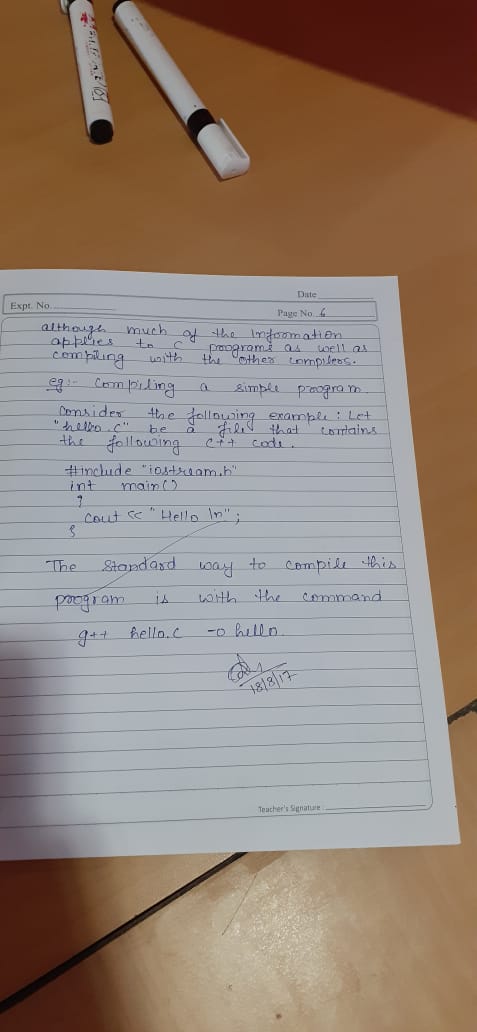 Date
Expt. No.
Page No. 6
although much of the Information
applies to C programs as well as
compiling with the other compilers.
eg:- Compiling a simple program.
Consider the following example: Let
"hello.C" be a file that contains
the following C++ code.
#include "iostream.h"
int main()
{
cout << "Hello \n";
}
The standard way to compile this
program is with the command
g++ hello.C -o hello.
18/8/17
Teacher's Signature :